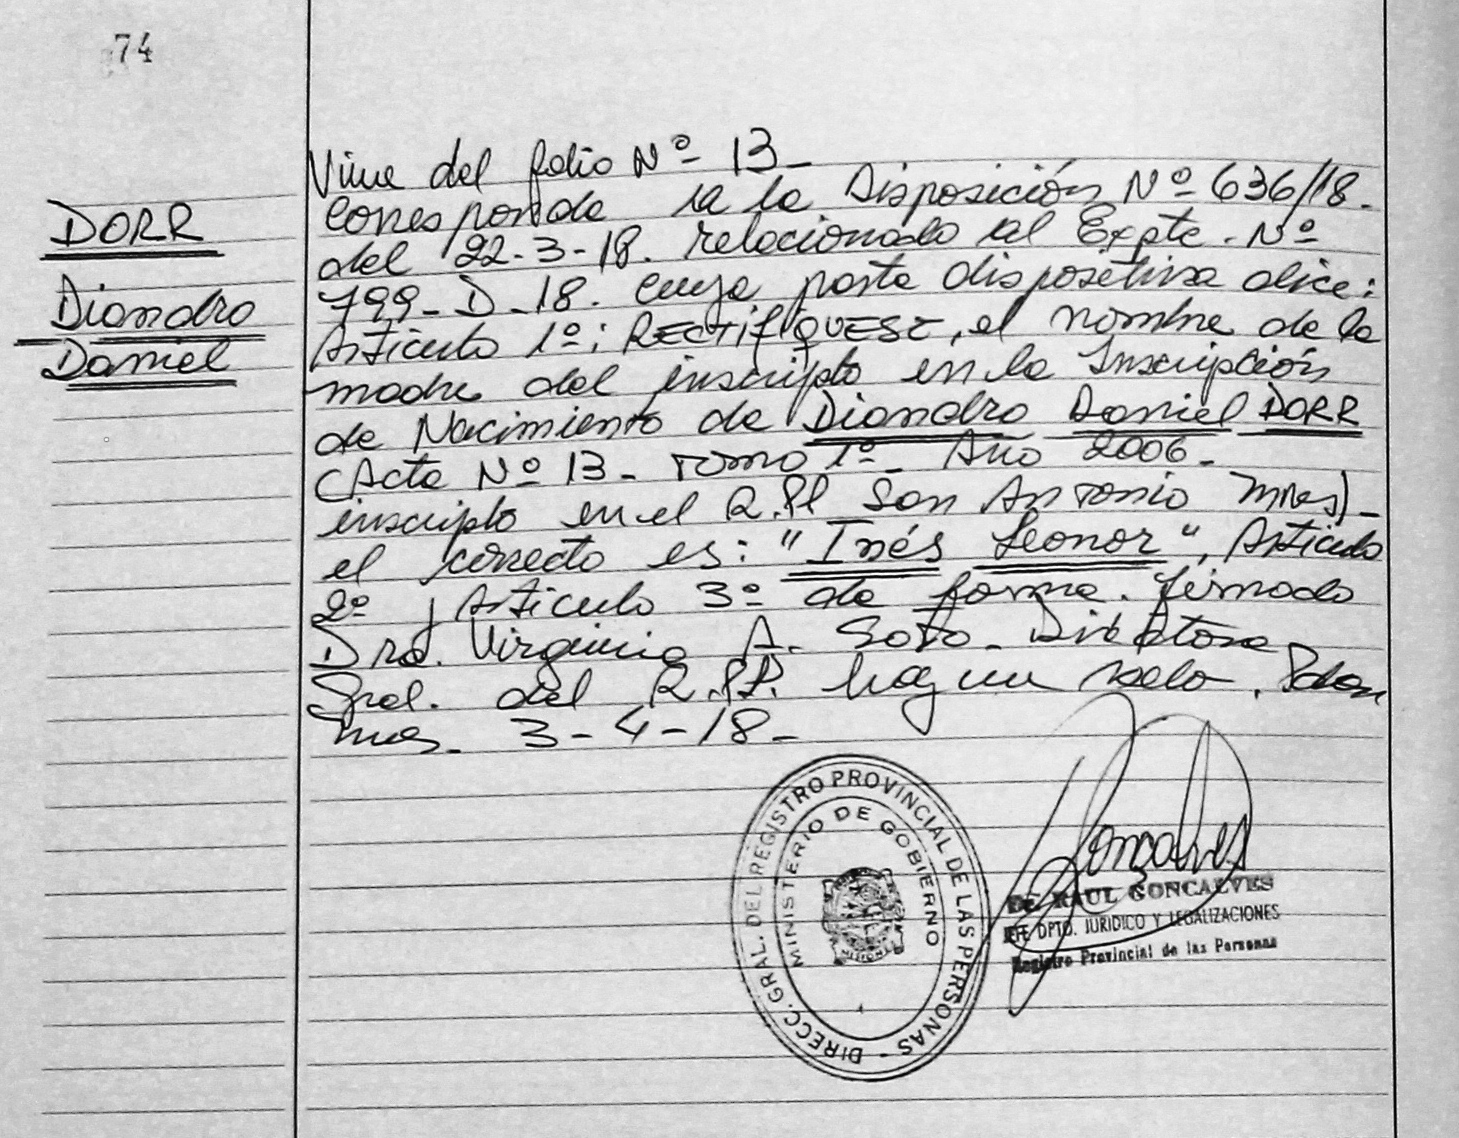 74
DORR
Diandro
Daniel
Viene del folio Nº 13-
Corresponde a la Disposición Nº 636/18.
del 22-3-18. relacionado al Expte. Nº
799-D-18. cuya parte dispositiva dice:
Artículo 1º: RECTIFIQUESE, el nombre de la
madre del inscripto en la Inscripción
de Nacimiento de Diandro Daniel DORR
(Acta Nº 13- Tomo 1º- Año 2006-
inscripto en el R.P.P San Antonio Mnes)-
el correcto es: "Inés Leonor", Artículo
2º y Artículo 3º de forma. Firmado
Dra. Virginia A. Soto- Directora
Gral. del R.P.P. hay un sello. Pdas
Mnes- 3-4-18-
DIRECC. GRAL. DEL REGISTRO PROVINCIAL DE LAS PERSONAS -
MINISTERIO DE GOBIERNO
MISIONES
Goncalves
Dr. RAUL GONCALVES
JEFE DPTO. JURIDICO Y LEGALIZACIONES
Registro Provincial de las Personas